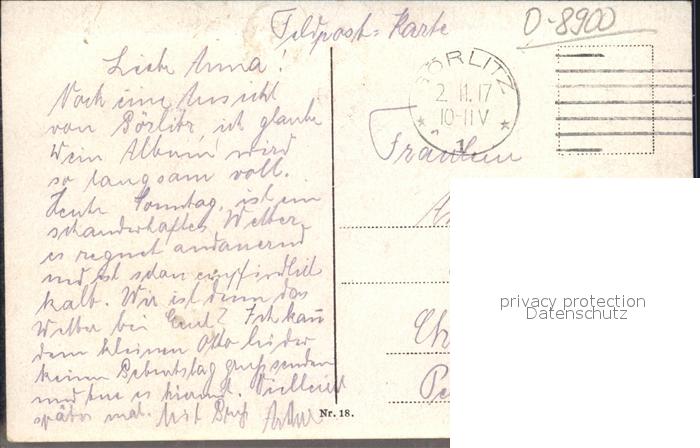 Feldpost=Karte
D-8900
Liebe Anna!
Noch eine Ansicht
von Görlitz, ich glaube
Dein Album wird
so langsam voll.
Heute Sonntag, ist ein
schauderhaftes Wetter
es regnet andauernd
und ist schon empfindlich
kalt. Wie ist denn das
Wetter bei Euch? Ich kann
dem kleinen Otto leider
keinen Geburtstag gruß senden
und tue es hiermit. Vielleicht
später mal. Mit Gruß
Nr. 18.
GÖRLITZ
2. 11. 17
10-11 V
* 1 *
Fräulein
privacy protection
Datenschutz